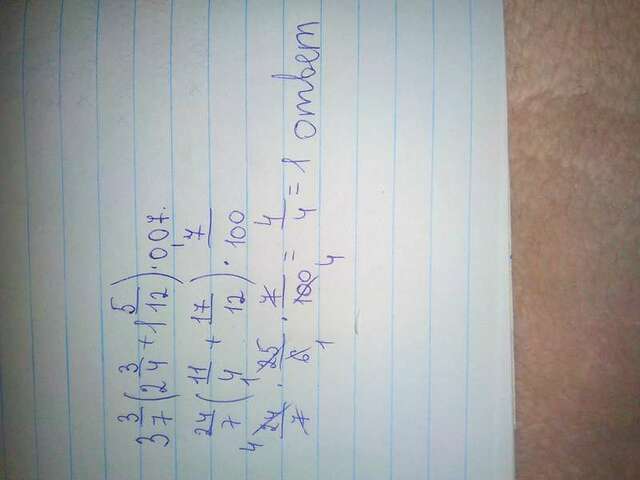 3 3/7 (2 3/4 + 1 5/12) · 0,07.
24/7 (11/4 + 17/12) · 7/100
24/7 · 25/6 · 7/100 = 4/4 = 1 ответ
4 1 1 4